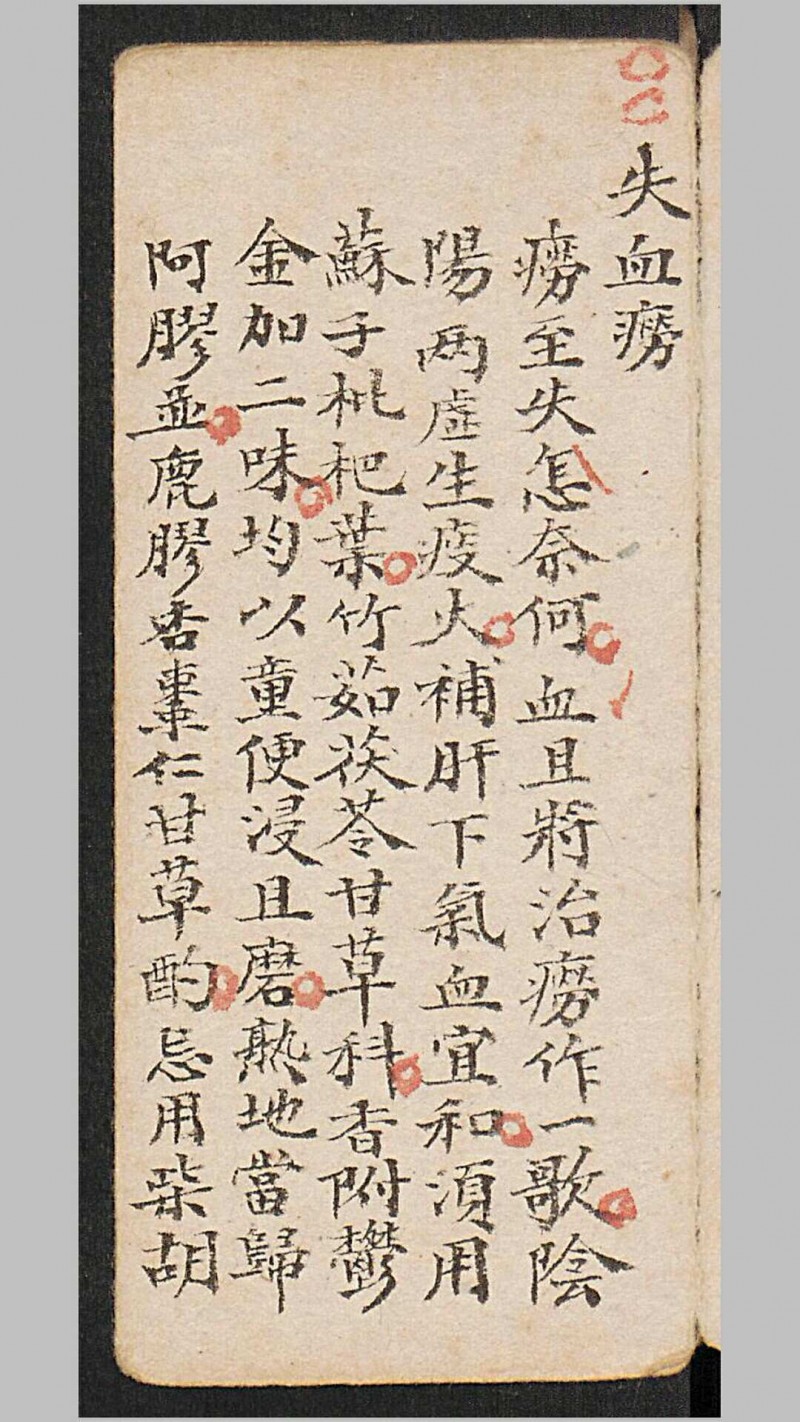 失血癆
癆至失怎奈何血且將治癆作一歌陰
陽两虛生疫火補肝下氣血宜和須用
蘇子枇杷葉竹茹茯苓甘草科香附鬱
金加二味均以童便浸且磨熟地當歸
阿膠並鹿膠杏棗仁甘草酌忌用柴胡